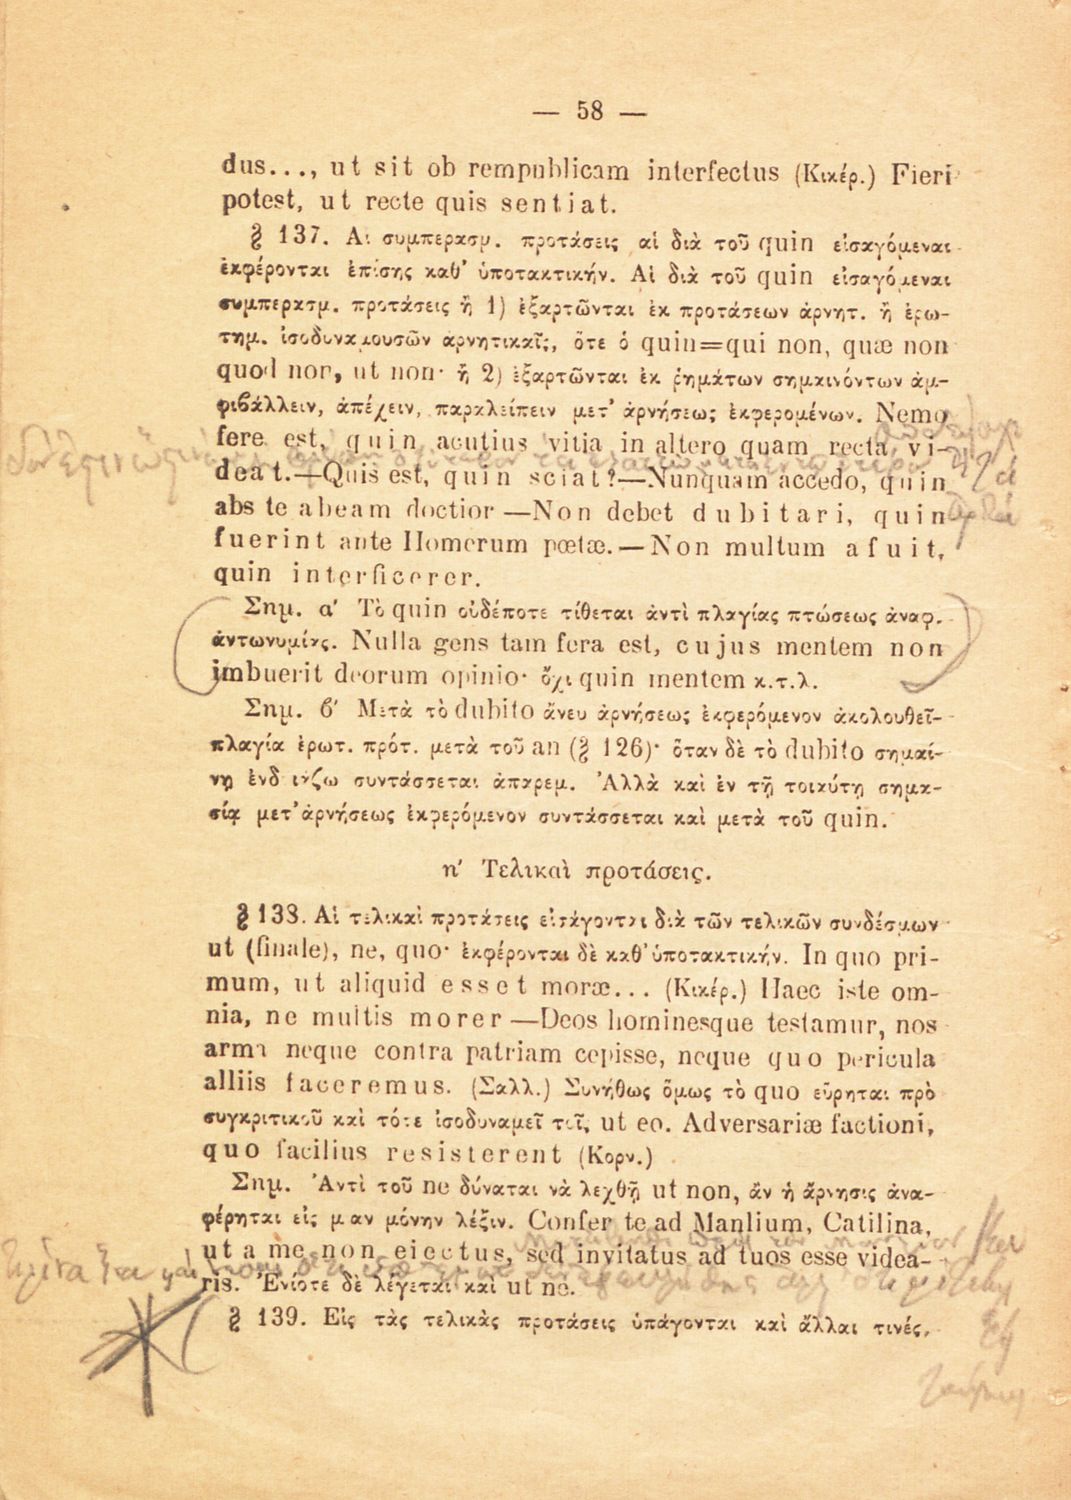 — 58 —
dus..., ut sit ob rempublicam interfectus (Κικέρ.) Fieri
potest, ut recte quis sentiat.
§ 137. Αἱ συμπερασμ. προτάσεις αἱ διὰ τοῦ quin εἰσαγόμεναι
ἐκφέρονται ἐπίσης καθ' ὑποτακτικήν. Αἱ διὰ τοῦ quin εἰσαγόμεναι
συμπερασμ. προτάσεις ἢ 1) ἐξαρτῶνται ἐκ προτάσεων ἀρνητ. ἢ ἐρω-
τημ. ἰσοδυναμουσῶν ἀρνητικαῖς, ὅτε ὁ quin=qui non, quæ non
quod non, ut non· ἢ 2) ἐξαρτῶνται ἐκ ῥημάτων σημαινόντων ἀμ-
φιβάλλειν, ἀπέχειν, παραλείπειν μετ' ἀρνήσεως ἐκφερομένων. Nemo
fere est, quin acutius vitia in altero quam recta vi-
deat.—Quis est, quin sciat?—Nunquam accedo, quin
abs te abeam doctior—Non debet dubitari, quin
fuerint ante Homerum poetæ.—Non multum afuit,
quin interficerer.
Σημ. α' Τὸ quin οὐδέποτε τίθεται ἀντὶ πλαγίας πτώσεως ἀναφ.
ἀντωνυμίας. Nulla gens tam fera est, cujus mentem non
imbuerit deorum opinio· ὄχι quin mentem κ.τ.λ.
Σημ. β' Μετὰ τὸ dubito ἄνευ ἀρνήσεως ἐκφερόμενον ἀκολουθεῖ
πλαγία ἐρωτ. πρότ. μετὰ τοῦ an (§ 126)· ὅταν δὲ τὸ dubito σημαί-
νῃ ἐνδοιάζω συντάσσεται ἀπαρεμ. Ἀλλὰ καὶ ἐν τῇ τοιαύτῃ σημα-
σίᾳ μετ' ἀρνήσεως ἐκφερόμενον συντάσσεται καὶ μετὰ τοῦ quin.
η' Τελικαὶ προτάσεις.
§ 138. Αἱ τελικαὶ προτάσεις εἰσάγονται διὰ τῶν τελικῶν συνδέσμων
ut (finale), ne, quo· ἐκφέρονται δὲ καθ' ὑποτακτικήν. In quo pri-
mum, ut aliquid esset moræ... (Κικέρ.) Haec iste om-
nia, ne multis morer—Deos hominesque testamur, nos
arma neque contra patriam cepisse, neque quo pericula
alliis faceremus. (Σαλλ.) Συνήθως ὅμως τὸ quo εὕρηται πρὸ
συγκριτικοῦ καὶ τότε ἰσοδυναμεῖ τῷ, ut eo. Adversariæ factioni,
quo facilius resisterent (Κορν.)
Σημ. Ἀντὶ τοῦ ne δύναται νὰ λεχθῇ ut non, ἂν ἡ ἄρνησις ἀνα-
φέρηται εἰς μίαν μόνην λέξιν. Confer te ad Manlium, Catilina,
ut a me non eiectus, sed invitatus ad tuos esse videa-
ris. Ἐνίοτε δὲ λέγεται καὶ ut ne.
§ 139. Εἰς τὰς τελικὰς προτάσεις ὑπάγονται καὶ ἄλλαι τινές,